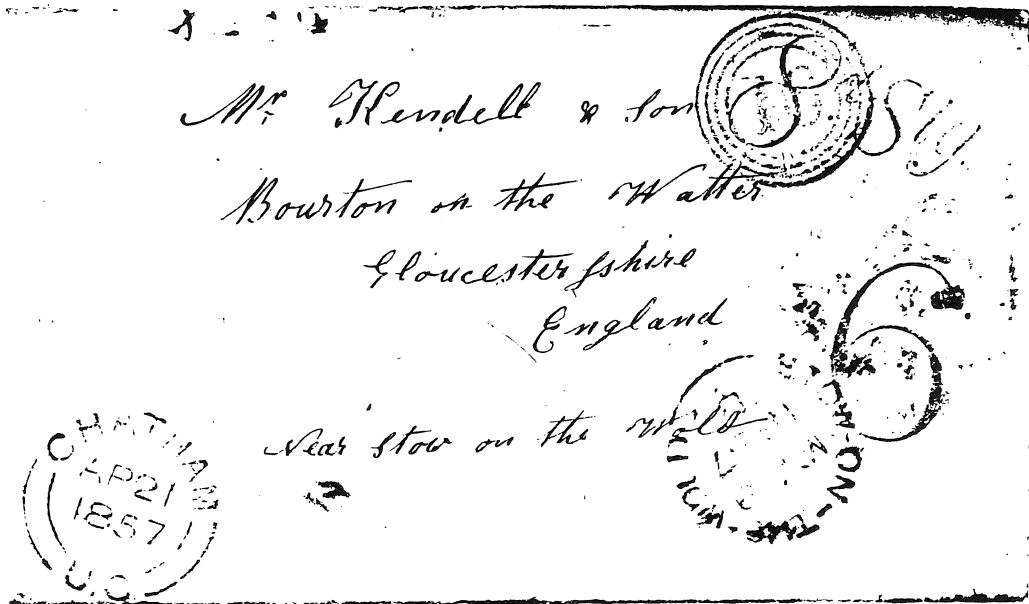 Mr Kendell & Son
Bourton on the Watter
Gloucestershire
England
Near Stow on the Wold
CHATHAM
AP 21
1857
U.C
6